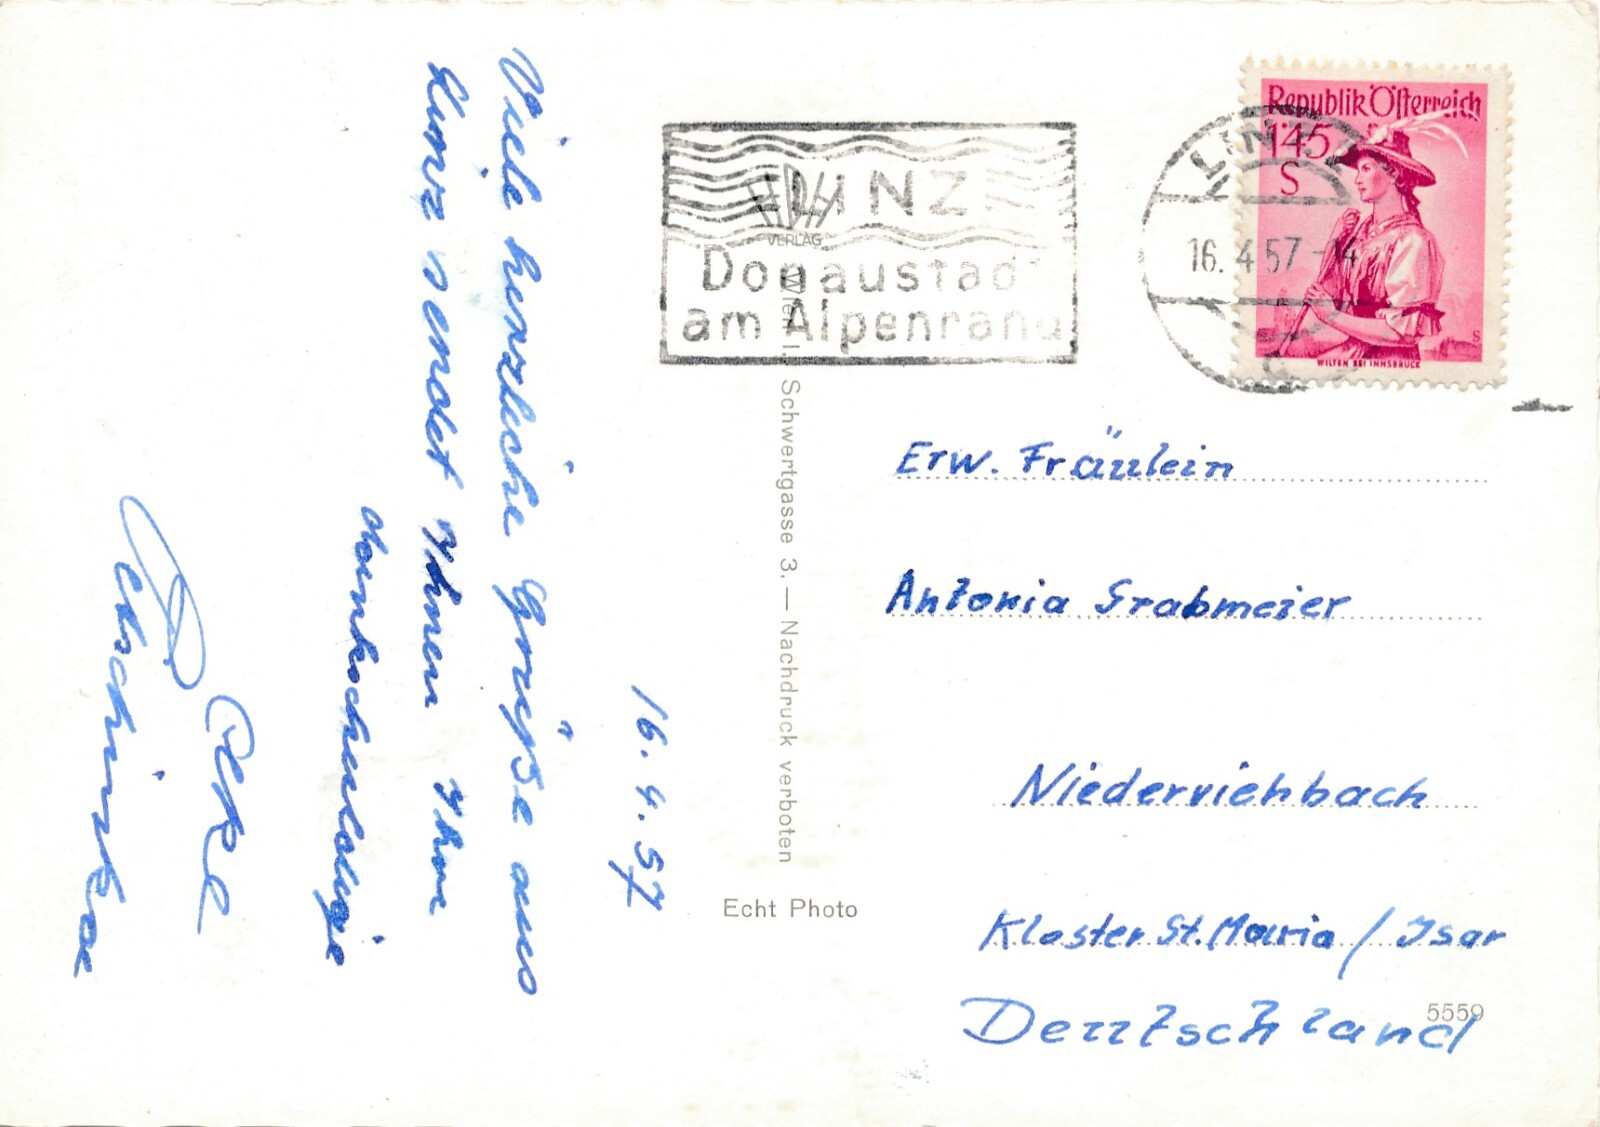 16. 4. 57
Viele herzliche Grüße aus
Linz sendet Ihnen Ihr
LINZ
Donaustadt
am Alpenrand
VERLAG
Wien I. Schwertgasse 3. — Nachdruck verboten
Echt Photo
Republik Österreich
1'45
S
WILTEN BEI INNSBRUCK
LINZ
16. 4 57 - 14
Erw. Fräulein
Antonia Grabmeier
Niederviehbach
Kloster St. Maria / Isar
Deutschland
5559